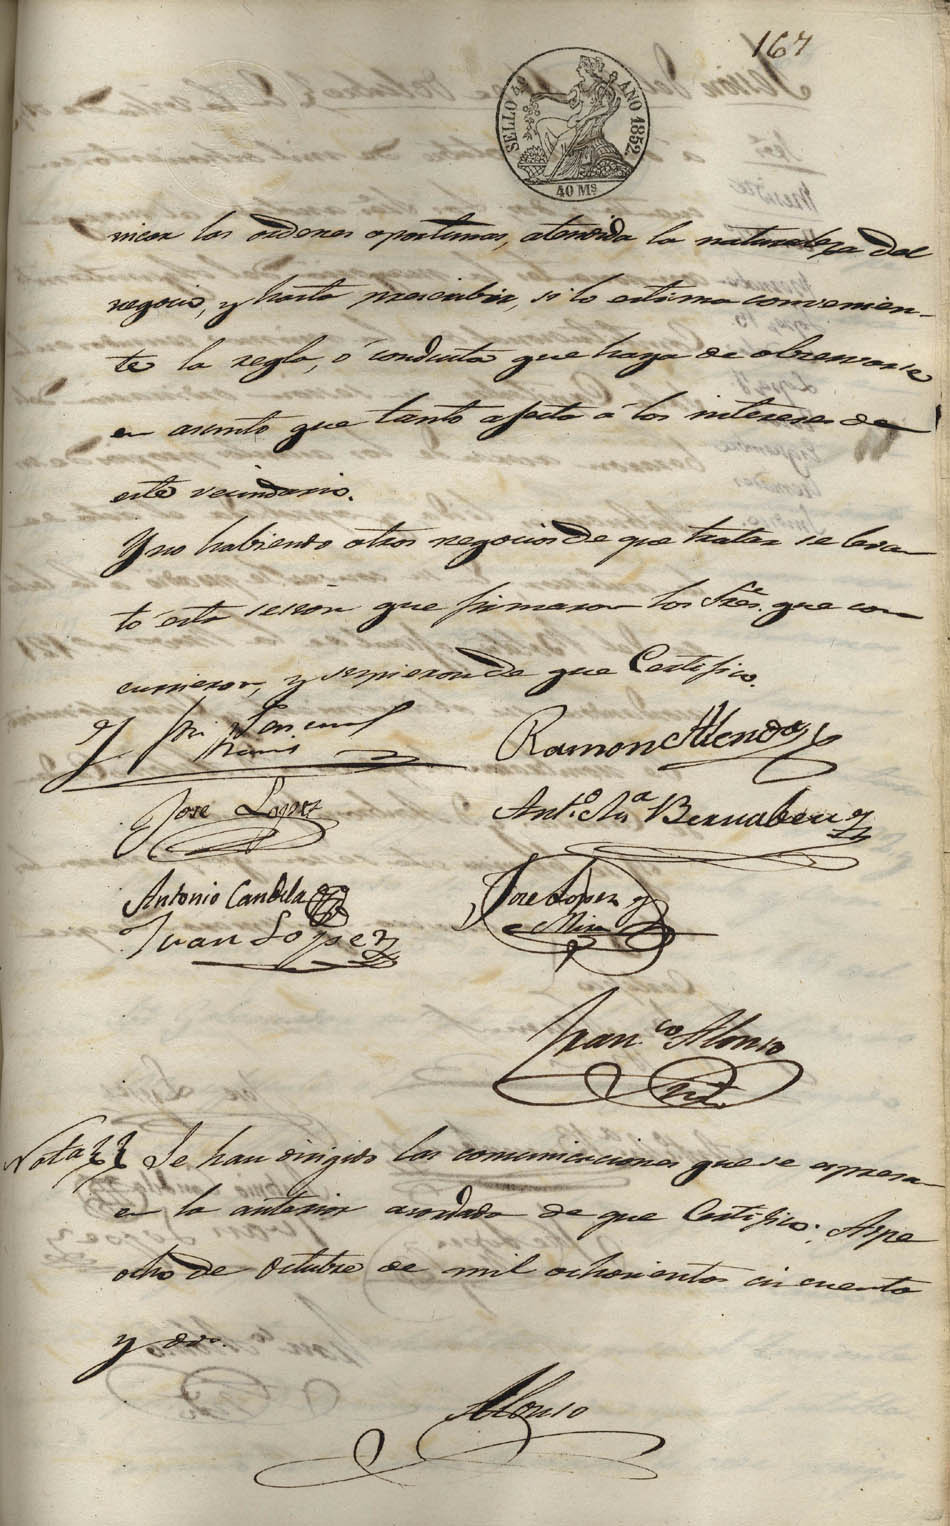 167
SELLO 4º AÑO 1852
40 Ms
nicar las ordenes oportunas, atendida la naturaleza del
negocio, y hasta prescribir, si lo estima convenien-
te la regla, ó conducta que haya de observarse
en asunto que tanto afecta á los intereses de
este vecindario.
Y no habiendo otros negocios de que tratar se levan
tó esta sesión que firmaron los Sres. que con
currieron, y supieron de que Certifico.
Pascual
Ramon Alenda
Jose Lopez
Antº. Mª Bernabeu
Antonio Candela
Jose Lopez y
Mira
Juan Lopez
Franco Alonso
Nota Se han dirigido las comunicaciones que se espresan
en la anterior acordado de que Certifico: Aspe
ocho de Octubre de mil ochocientos cincuenta
y dos.
Alonso